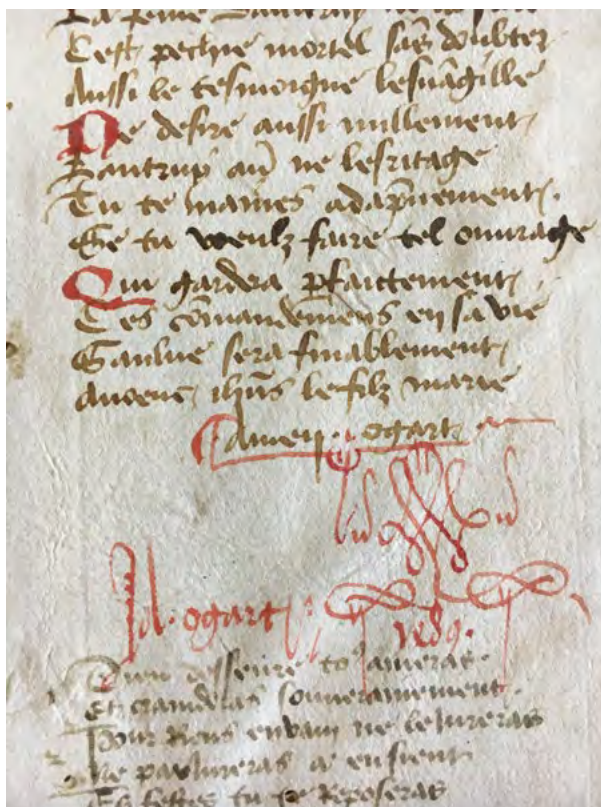 La feme dautruy ne
Cest pechie mortel sãs doubter
Aussi le tesmoigne lesuãgille
Ne desire aussi nullement
Lautruy au̅ ne lesritage
Tu te maines a dãpnement
Se tu veulz faire tel ouurage
Qui gardera pfaictement
Ces cõmandemens en sa vie
Saulue sera finablement
Auenc ihũs le filz marie
Amen. ogart
Jd. ogart
Dieu desseure to9 ameras
Et craindras souuerainement
Pour Riens en vain ne le iureras
Ne pariureras a ensient
Es festes tu te Reposeras